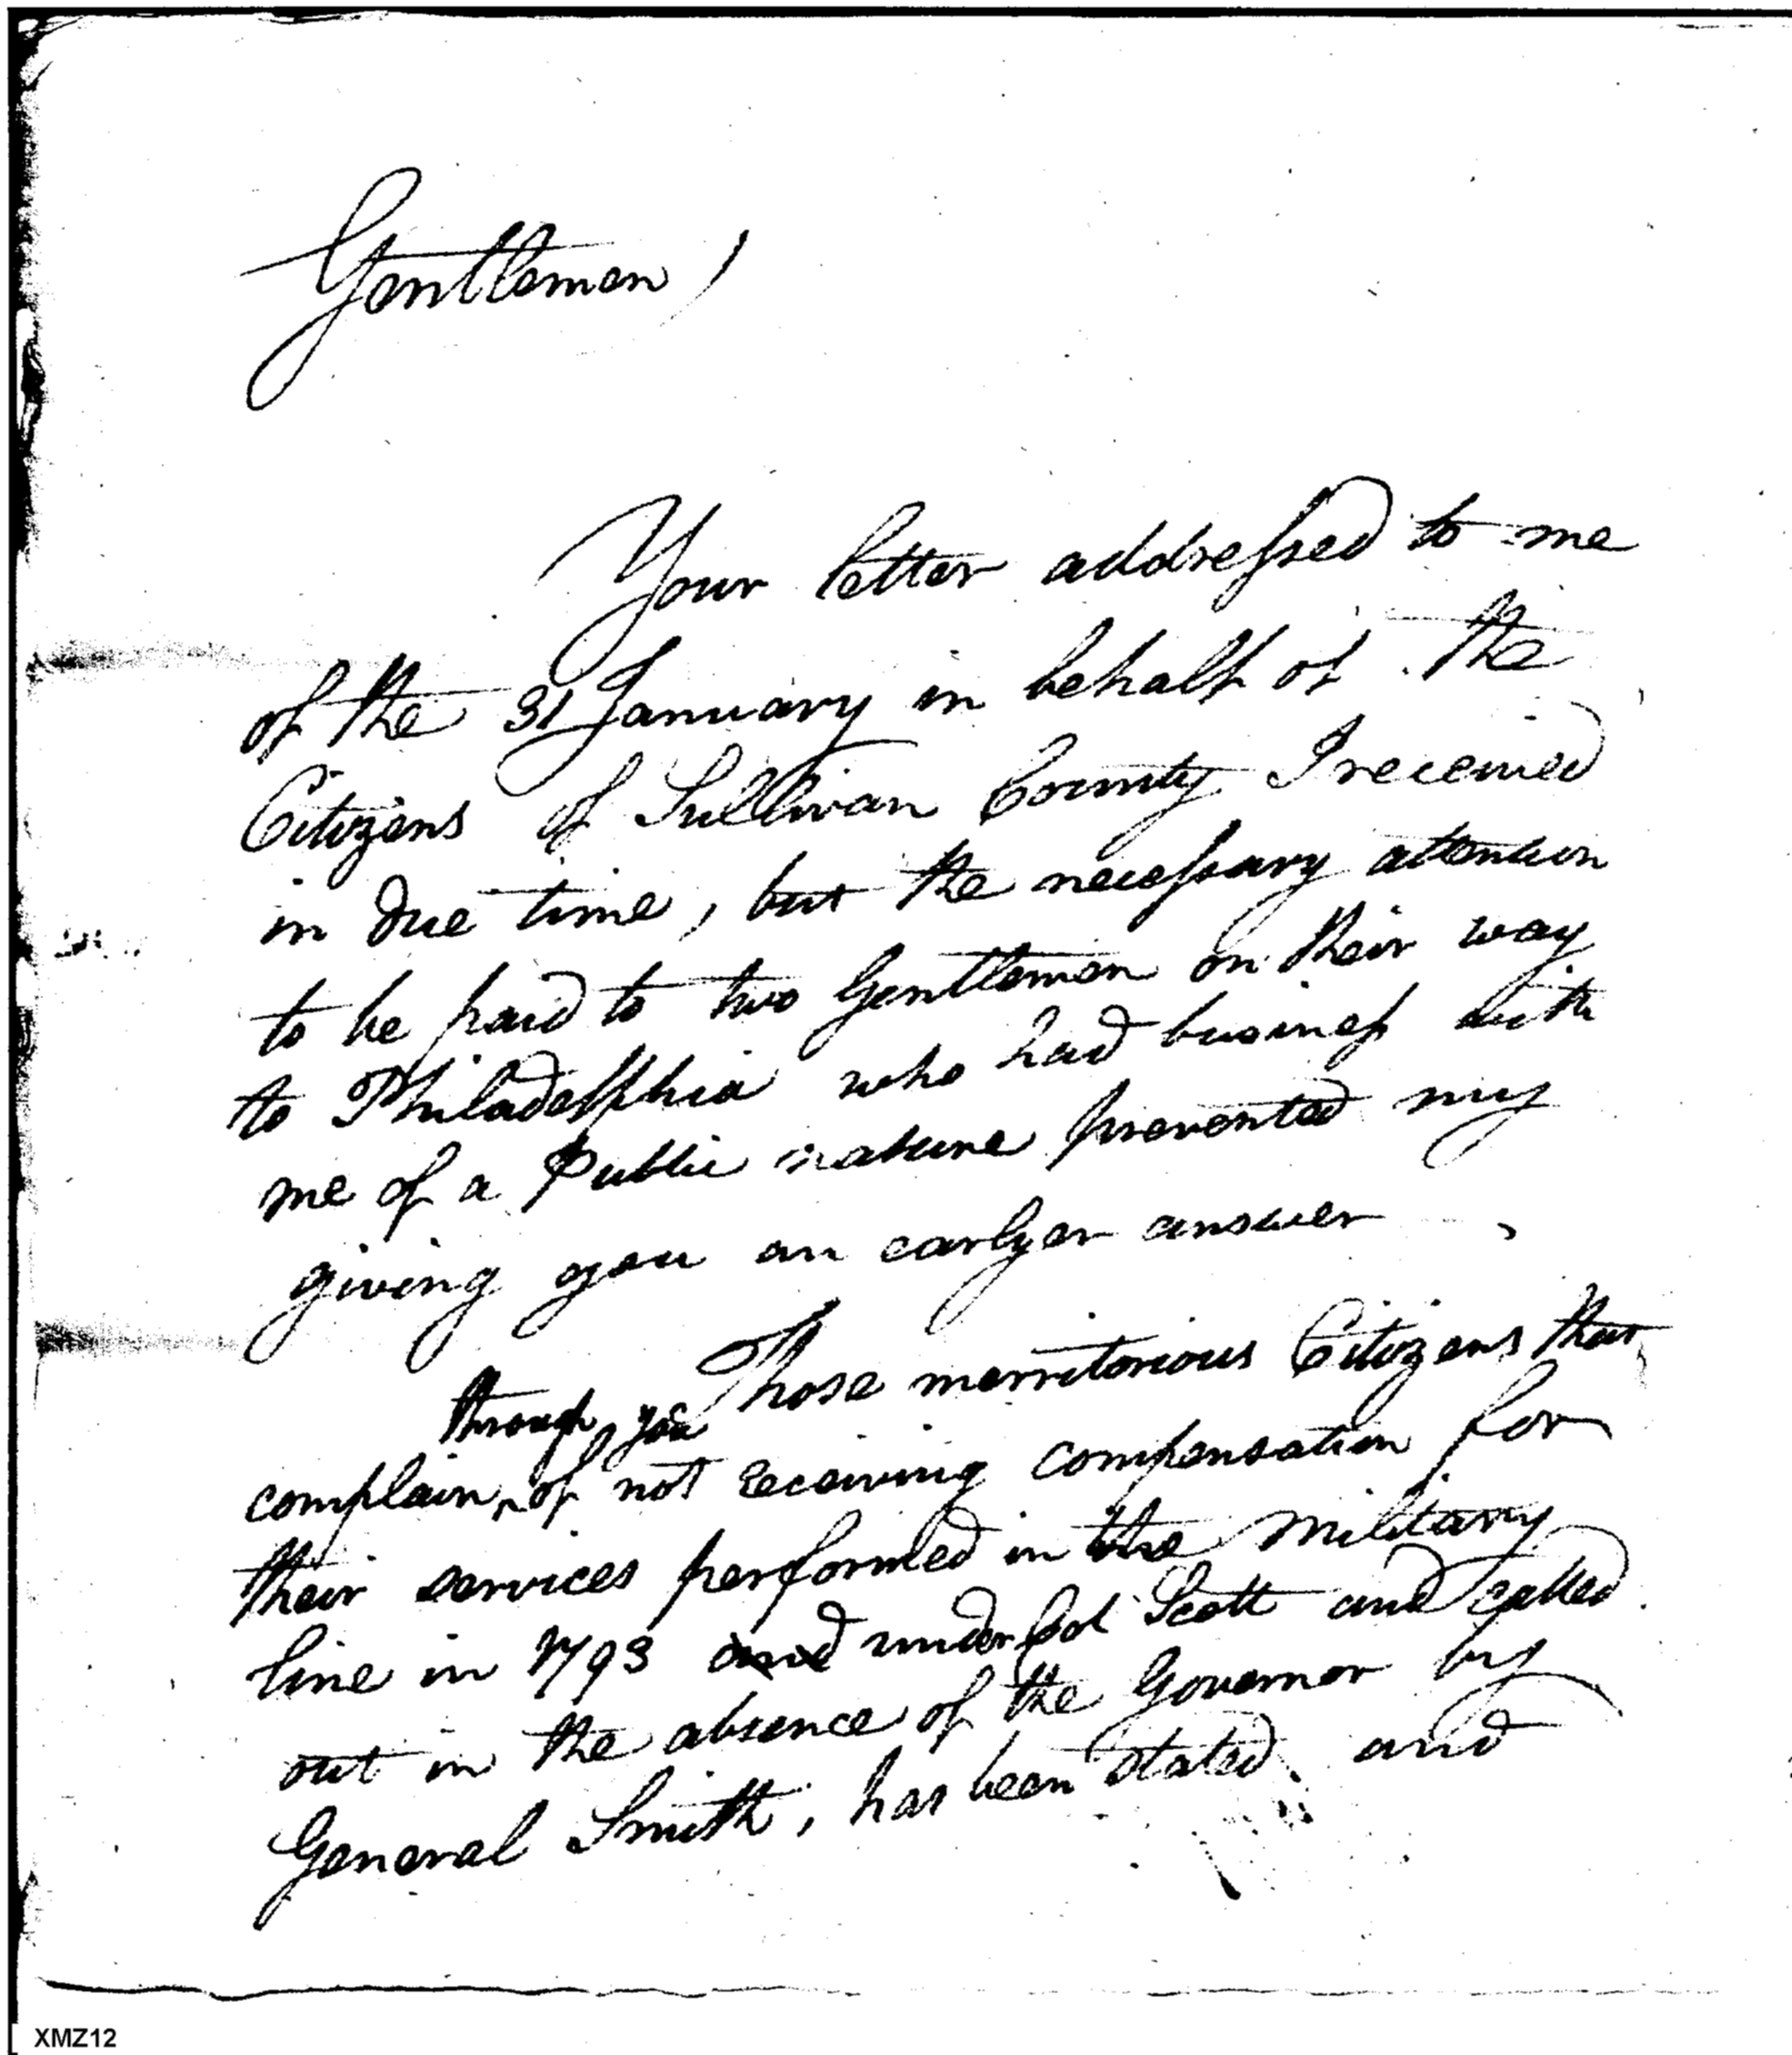 Gentlemen,
Your letter addressed to me
of the 31 January in behalf of the
Citizens of Sullivan County I received
in due time, but the necessary attention
to be paid to two Gentlemen on their way
to Philadelphia who had business with
me of a Public nature prevented my
giving you an earlyer answer
Those merritorious Citizens that
through you
complain, of not receiving compensation for
their services performed in the military
line in 1793 and under Col Scott and called
out in the absence of the Governor by
General Smith, has been stated, and
XMZ12